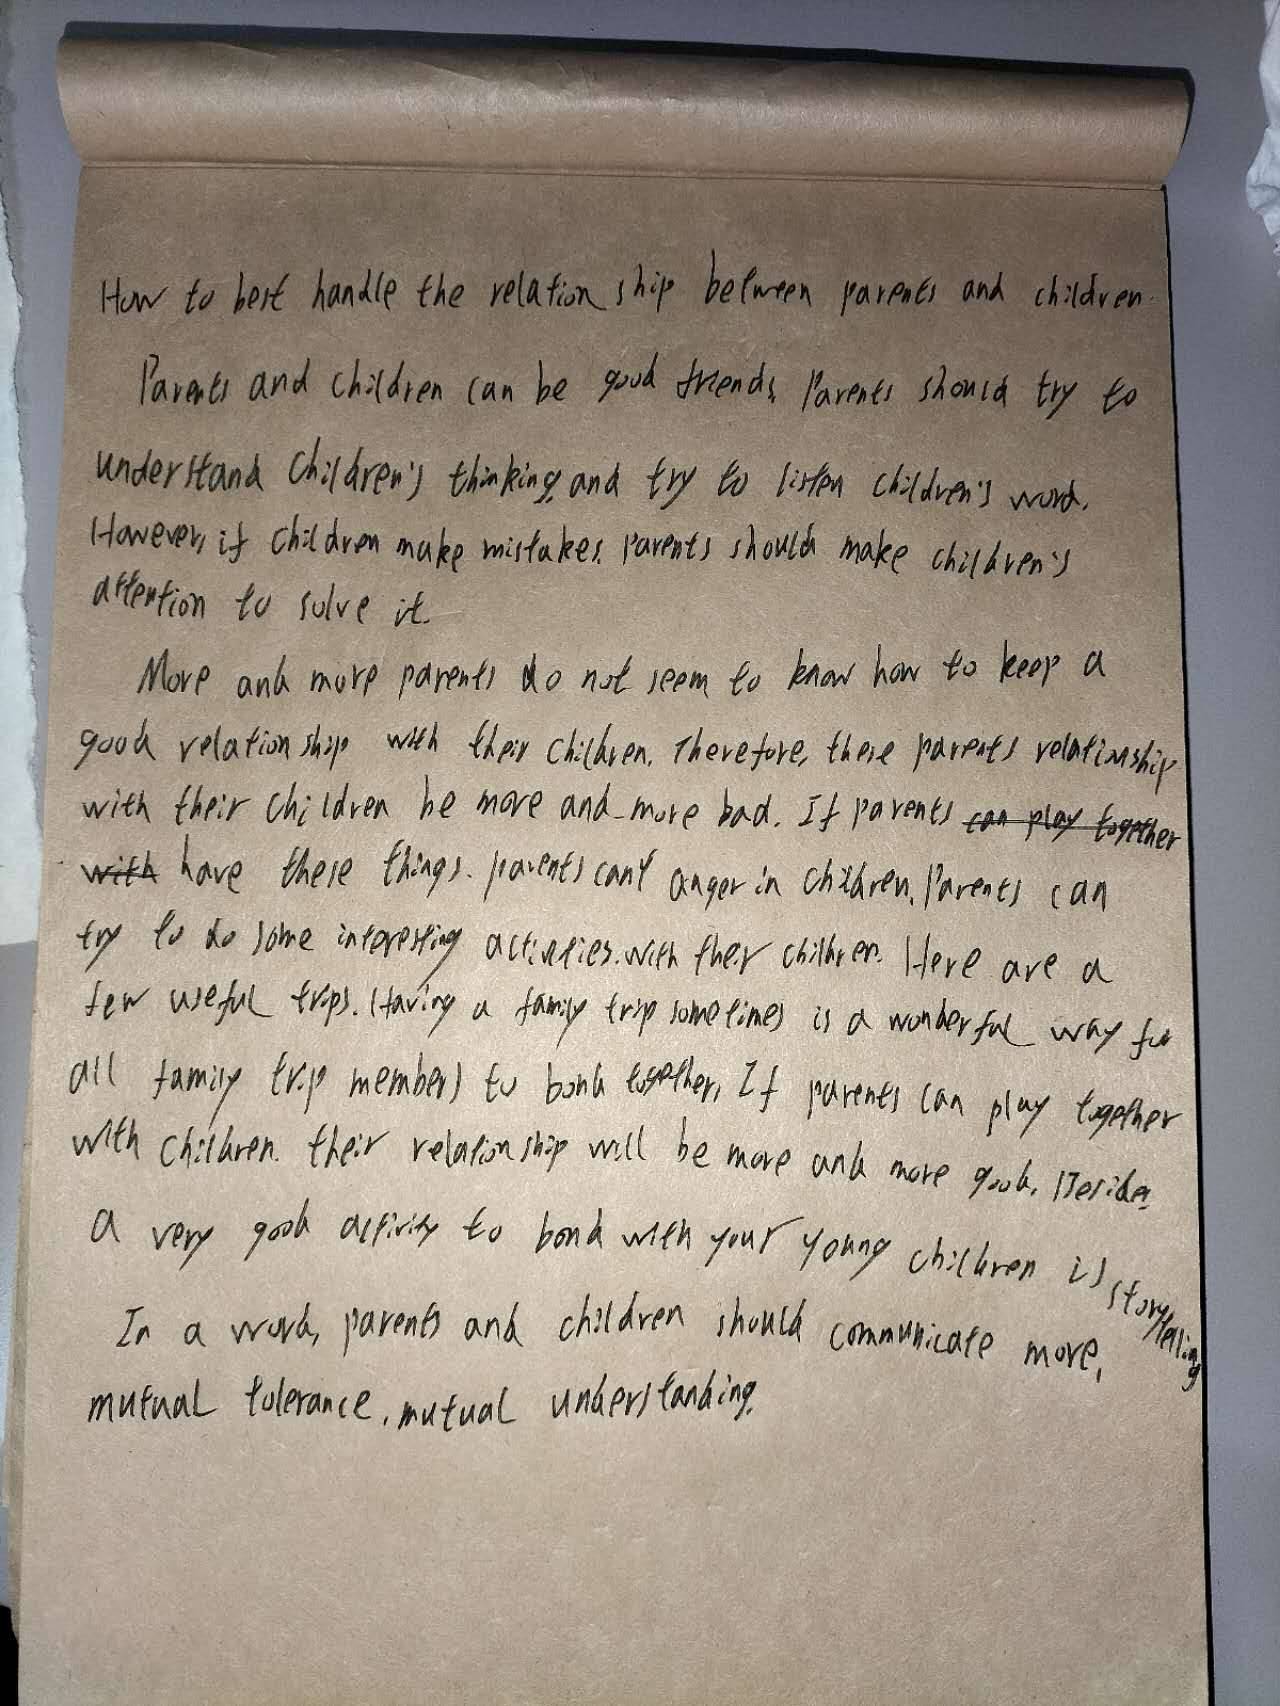 How to best handle the relationship between parents and children.
Parents and children can be good friends. Parents should try to
understand children's thinking, and try to listen children's word.
However, if children make mistakes. Parents should make children's
attention to solve it.
More and more parents do not seem to know how to keep a
good relationship with their children. Therefore, these parents relationship
with their children be more and more bad. If parents can play together
with have these things. parents can't anger in children. Parents can
try to do some interesting activities. with their children. Here are a
few useful trips. Having a family trip sometimes is a wonderful way for
all family trip members to bond together, If parents can play together
with children. their relationship will be more and more good. Besides
a very good activity to bond with your young children is storytelling
In a word, parents and children should communicate more,
mutual tolerance, mutual understanding.